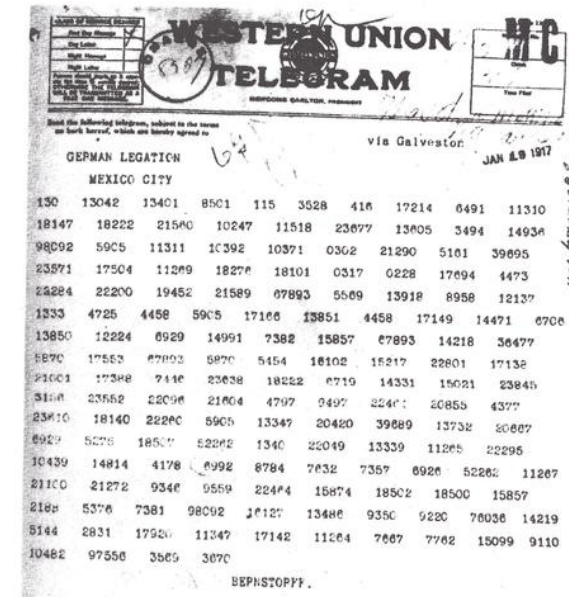 WESTERN UNION
TELEGRAM
NEWCOMB CARLTON, PRESIDENT
CLASS OF SERVICE DESIRED
Fast Day Message
Day Letter
Night Message
Night Letter
Send the following telegram, subject to the terms
on back hereof, which are hereby agreed to
Time Filed
via Galveston
JAN 19 1917
GERMAN LEGATION
MEXICO CITY
130 13042 13401 8501 115 3528 416 17214 6491 11310
18147 18222 21560 10247 11518 23677 13605 3494 14936
98092 5905 11311 10392 10371 0302 21290 5161 39695
23571 17504 11269 18276 18101 0317 0228 17694 4473
22284 22200 19452 21589 67893 5569 13918 8958 12137
1333 4725 4458 5905 17166 13851 4458 17149 14471 6706
13850 12224 6929 14991 7382 15857 67893 14218 36477
5870 17553 67893 5870 5454 16102 15217 22801 17138
21001 17388 7446 23638 18222 6719 14331 15021 23845
3156 23552 22096 21604 4797 9497 22464 20855 4377
23610 18140 22260 5905 13347 20420 39689 13732 20667
6929 5275 18507 52262 1340 22049 13339 11265 22295
10439 14814 4178 6992 8784 7632 7357 6926 52262 11267
21100 21272 9346 9559 22464 15874 18502 18500 15857
2188 5376 7381 98092 16127 13486 9350 9220 76036 14219
5144 2831 17920 11347 17142 11264 7667 7762 15099 9110
10482 97556 3569 3670
BERNSTORFF.